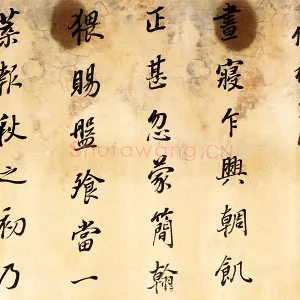 晝寢乍興輖飢
正甚忽蒙簡翰
猥賜盤飧當一
葉報秋之初乃
Shufawang.CN